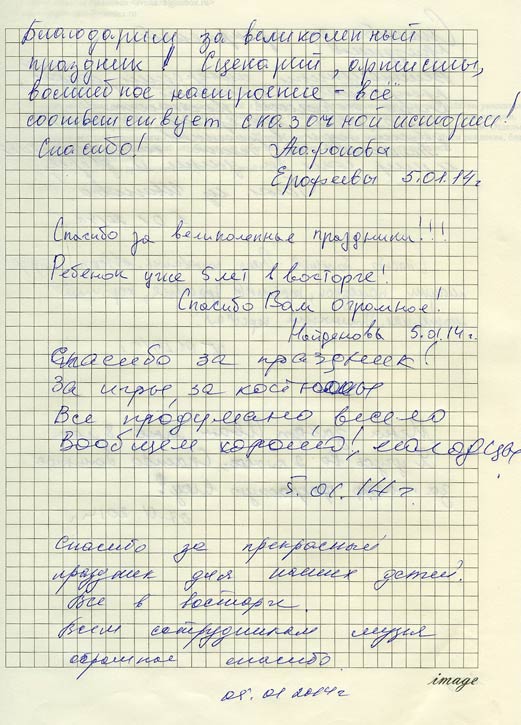 Благодарим за великолепный
праздник! Сценарий, артисты,
волшебное настроение - всё
соответствует сказочной истории!
Спасибо!
Ерофеевы 5.01.14г
Спасибо за великолепные праздники!!!
Ребенок уже 5 лет в восторге!
Спасибо Вам огромное!
Найденовы 5.01.14г.
Спасибо за праздник!
За игры за костюмы
Все продумано, весело
Вообщем хорошо!, молодцы
5.01.14г.
Спасибо за прекрасный
праздник для наших детей.
Все в восторге.
Всем сотрудникам музея
огромное спасибо
05.01 2014г
image